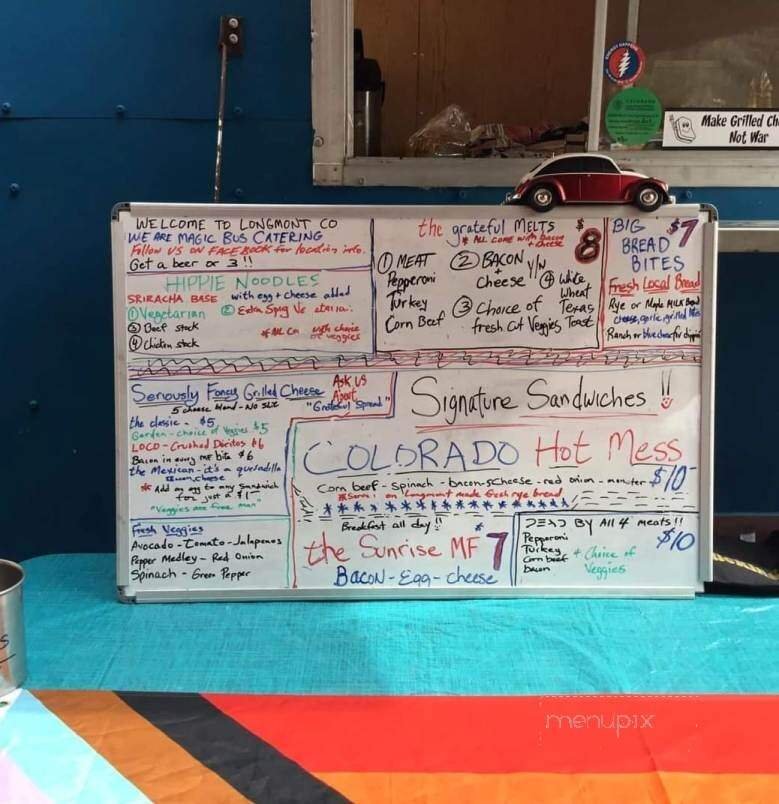 Make Grilled Ch
Not War
WELCOME TO LONGMONT CO
WE ARE MAGIC BUS CATERING
Follow US on FACEBOOK for location info.
Get a beer or 3 !!
HIPPIE NOODLES
SRIRACHA BASE with egg + cheese added
① Vegetarian
②
③ Beef stock
④ Chicken stock
with choice
or veggies
the grateful MELTS
* ALL COME with Bacon
+ cheese
$8
① MEAT
Pepperoni
Turkey
Corn Beef
② BACON Y/N
+
Cheese
③ Choice of
fresh cut Veggies
④ White
Wheat
Texas
Toast
BIG $7
BREAD
BITES
Fresh Local Bread
Rye or Maple MILK Bread
cheese, garlic, grilled
Ranch or blue cheese for
Seriously Fancy Grilled Cheese
5 cheese blend - NO
the classic - $5
Garden - choice of Veggies $5
LOCO - Crushed Doritos $6
Bacon in every mf bite $6
the Mexican - it's a quesadilla
cheese
* Add an egg to any sandwich
for just a $1
"Veggies are free man"
Ask us
About
"Grateful Spread"
Fresh Veggies
Avocado - Tomato - Jalapenos
Pepper Medley - Red Onion
Spinach - Green Pepper
Signature Sandwiches !!
COLORADO Hot Mess
Corn beef - Spinach - bacon - 5cheese - red onion - $10
on Longmont made fresh rye bread
Breakfast all day !!
the Sunrise MF 7
Bacon - Egg - cheese
DEAD BY All 4 meats !!
$10
Pepperoni
Turkey
Corn beef
bacon
+ Choice of
Veggies
menupix